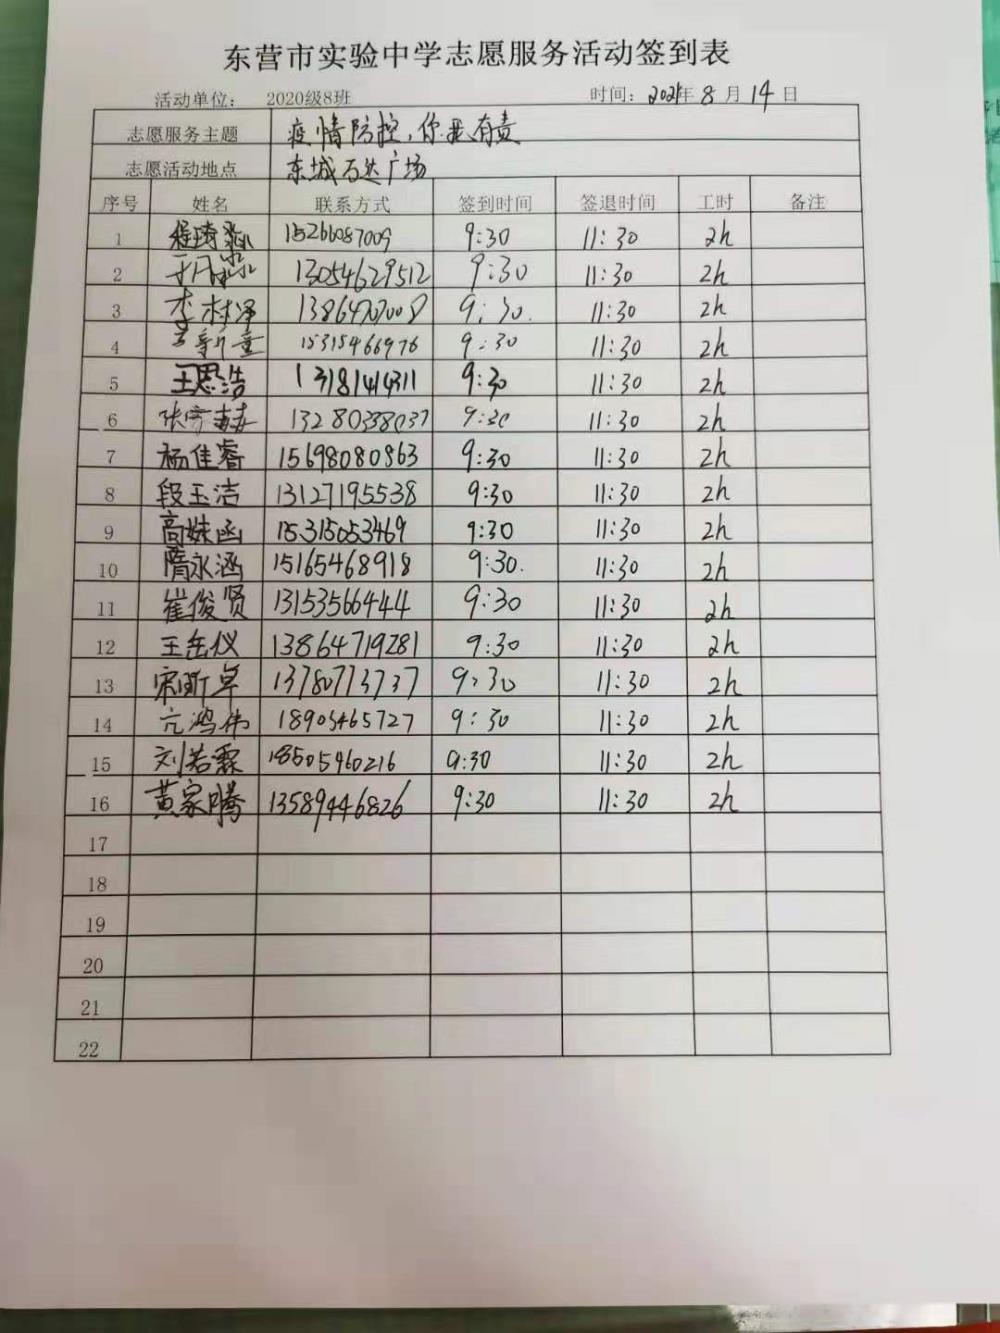 东营市实验中学志愿服务活动签到表
活动单位： 2020级8班 时间：2021年8月14日
志愿服务主题 疫情防控，你我有责
志愿活动地点 东城万达广场
序号 姓名 联系方式 签到时间 签退时间 工时 备注
1 15266087009 9:30 11:30 2h
2 13054629512 9:30 11:30 2h
3 李林泽 13864707008 9:30. 11:30 2h
4 王新童 15315466976 9:30 11:30 2h
5 王思浩 13181414311 9:30 11:30 2h
6 13280338037 9:30 11:30 2h
7 杨佳睿 15698080863 9:30 11:30 2h
8 段玉洁 13127195538 9:30 11:30 2h
9 高姝函 15315053469 9:30 11:30 2h
10 隋永涵 15165468918 9:30. 11:30 2h
11 崔俊贤 13153566444 9:30 11:30 2h
12 王岳仪 13864719281 9:30 11:30 2h
13 宋昕卓 13780773737 9:30 11:30 2h
14 亢鸿伟 18905465727 9:30 11:30 2h
15 刘若霖 18505460216 9:30 11:30 2h
16 黄家腾 13589446826 9:30 11:30 2h
17
18
19
20
21
22